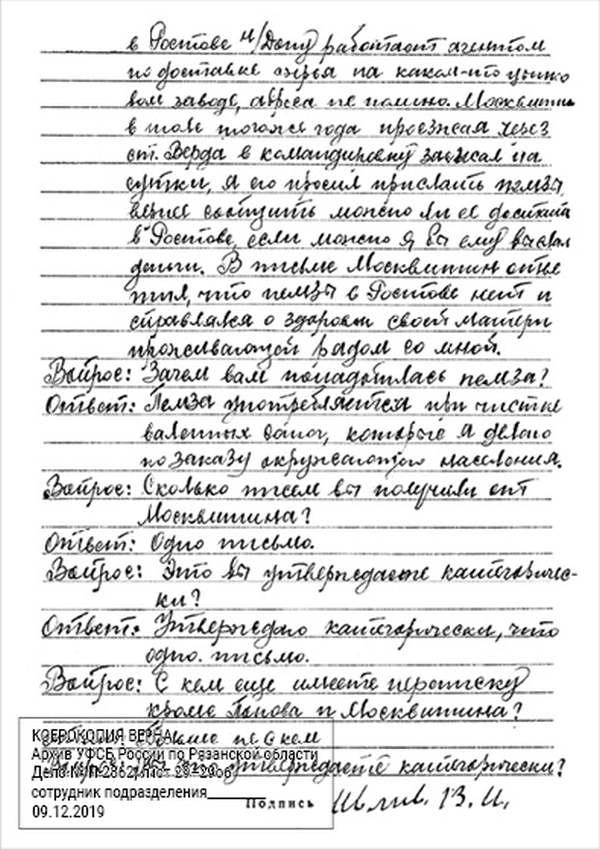 в Ростове н/Дону работает агентом
по доставке сырья на каком-то цинко
вом заводе, адреса не помню. Москвитин
в июле того же года проезжая через
ст. Верда в командировку заезжал на
сутки, я его просил прислать пемзы
сообщить можно ли ее достать
в Ростове, если можно я бы ему выслал
деньги. В письме Москвитин отве
тил, что пемзы в Ростове нет и
справлялся о здоровьи своей матери
проживающей рядом со мной.
Вопрос: Зачем вам понадобилась пемза?
Ответ: Пемза употребляется при чистке
валенных сапог, которые я делаю
по заказу окружающего населения.
Вопрос: Сколько писем вы получили от
Москвитина?
Ответ: Одно письмо.
Вопрос: Это вы утверждаете категоричес-
ки?
Ответ: Утверждаю категорически, что
одно письмо.
Вопрос: С кем еще имеете переписку
кроме Панова и Москвитина?
Ответ: Больше не с кем
Вопрос: Это утверждаете категорически?
КСЕРОКОПИЯ ВЕРНА
Архив УФСБ России по Рязанской области
Дело № П-2862, лист 29-29об.
сотрудник подразделения
09.12.2019
Подпись